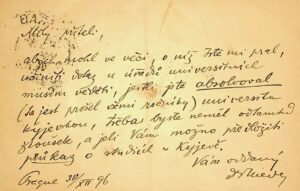 Milý příteli,
abych mohl ve věci, o níž jste mi psal,
učiniti dotaz u úřadů universitních
musím věděti, jestli jste absolvoval
(to jest prošel všemi ročníky) universitu
kyjevskou, třebas byste neměl odtamtud
zkoušek, a jeli Vám možno předložiti
průkaz o studiích v Kyjevě.
Vám oddaný
Prague 30/XII 96